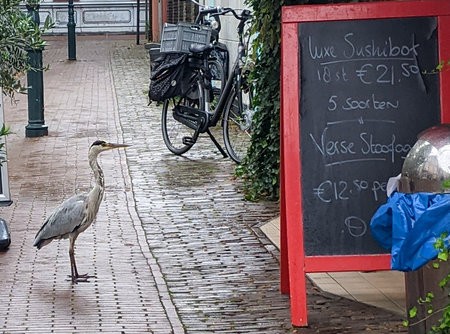 luxe Sushibox
18 st €21,50
5 soorten
Verse
€12,50 p